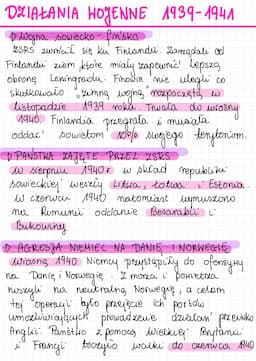 DZIAŁANIA WOJENNE 1939-1941
Wojna sowiecko-fińska
ZSRS zwrócił się ku Finlandii. Zażądali od
Finlandii ziem które miały zapewnić lepszą
obronę Leningradu. Finowie nie ulegli co
skutkowało "zimną wojną" rozpoczętą w
listopadzie 1939 roku. Trwała do wiosny
1940. Finlandia przegrała i musiała
oddać sowietom 10% swojego terytorium.
PAŃSTWA ZAJĘTE PRZEZ ZSRS
W sierpniu 1940r w skład republiki
sowieckiej weszły Litwa, Łotwa i Estonia.
W czerwcu 1940 natomiast wymuszono
na Rumunii oddanie Besarabii i
Bukowiny
AGRESJA NIEMIEC NA DANIĘ I NORWEGIĘ
Wiosną 1940 Niemcy przystąpiły do ofensywy
na Danię i Norwegię. Z morza i powietrza
ruszyli na neutralną Norwegię, a celem
tej operacji było przejęcie ich portów
umożliwiających prowadzenie działań przeciwko
Anglii. Państwo z pomocą Wielkiej Brytanii
i Francji toczyło walki do czerwca 1940